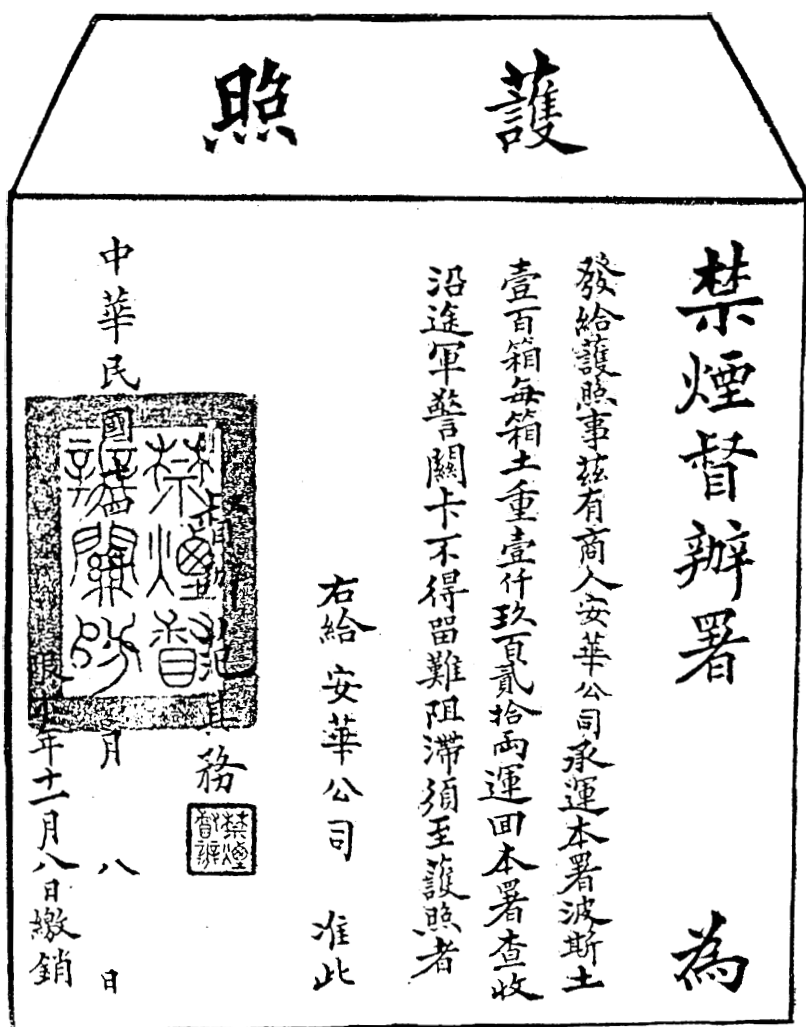 護照
禁煙督辦署 為
發給護照事茲有商人安華公司承運本署波斯土
壹百箱每箱土重壹仟玖百貳拾兩運回本署查收
沿途軍警關卡不得留難阻滯須至護照者
右給 安華公司 准此
務
禁煙督辦
中華民國 月 八 日
禁煙督辦關防
限 年十一月八日繳銷